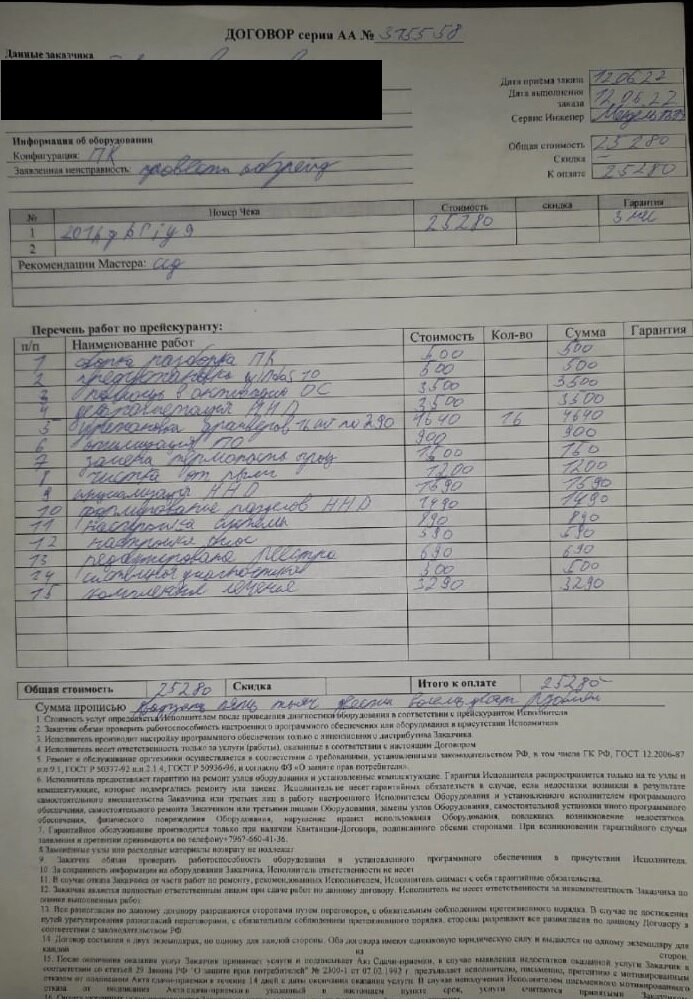 ДОГОВОР серии АА № 375558
Данные заказчика
Дата приёма заказа 12.06.22
Дата выполнения заказа 12.06.22
Сервис Инженер
Информация об оборудовании
Конфигурация: ПК
Заявленная неисправность: провести
Общая стоимость 25280
Скидка –
К оплате 25280
№ Номер Чека Стоимость скидка Гарантия
1 25280 3 мес
2
Рекомендации Мастера:
Перечень работ по прейскуранту:
п/п Наименование работ Стоимость Кол-во Сумма Гарантия
1 сборка разборка ПК 500 500
2 500 500
3 помощь в активации ОС 3500 3500
4 3500 3500
5 установка драйверов 16 шт по 290 4640 16 4640
6 оптимизация ПО 900 900
7 замена термопасты
8 чистка от пыли 1200 1200
9 1690 1690
10 форматирование разделов HHD 1490 1490
11 настройка системы 890 890
12 настройка биос 590 590
13 реестра 690 690
14 диагностика 500 500
15 комплексная лечение 3290 3290
Общая стоимость 25280 Скидка Итого к оплате 25280
Сумма прописью двадцать пять тысяч двести восемьдесят рублей
1. Стоимость услуг определяется Исполнителем после проведения диагностики оборудования в соответствии с прейскурантом Исполнителя
2. Заказчик обязан проверить работоспособность настроенного программного обеспечения или оборудования в присутствии Исполнителя
3. Исполнитель производит настройку программного обеспечения только с лицензионного дистрибутива Заказчика
4. Исполнитель несет ответственность только за услуги (работы), оказанные в соответствии с настоящим Договором
5. Ремонт и обслуживание оргтехники осуществляется в соответствии с требованиями, установленными законодательством РФ, в том числе ГК РФ, ГОСТ 12.2006-87
п.п 9.1, ГОСТ Р 50377-92 п.п 2.1.4, ГОСТ Р 50936-96, и согласно ФЗ «О защите прав потребителя».
6. Исполнитель предоставляет гарантию на ремонт узлов оборудования и установленные комплектующие. Гарантия Исполнителя распространяется только на те узлы и
комплектующие, которые подвергались ремонту или замене. Исполнитель не несет гарантийных обязательств в случае, если недостатки возникли в результате
самостоятельного вмешательства Заказчика или третьих лиц в работу настроенного Исполнителем Оборудования и установленного исполнителем программного
обеспечения, самостоятельного ремонта Заказчиком или третьими лицами Оборудования, замены узлов Оборудования, самостоятельной установки иного программного
обеспечения, физического повреждения Оборудования, нарушения правил использования Оборудования, повлекших возникновение недостатков.
7. Гарантийное обслуживание производится только при наличии Квитанции-Договора, подписанного обеими сторонами. При возникновении гарантийного случая
заявления и претензии принимаются по телефону+7967-660-41-36.
8 Заменённые узлы или расходные материалы возврату не подлежат
9. Заказчик обязан проверить работоспособность оборудования и установленного программного обеспечения в присутствии Исполнителя.
10. За сохранность информации на оборудовании Заказчика, Исполнитель ответственности не несет
11. В случае отказа Заказчика от части работ по ремонту, рекомендованных Исполнителем, Исполнитель снимает с себя гарантийные обязательства.
12. Заказчик является полностью ответственным лицом при сдаче работ по данному договору. Исполнитель не несет ответственности за некомпетентность Заказчика по
оценке выполненных работ.
13. Все разногласия по данному договору разрешаются сторонами путем переговоров, с обязательным соблюдением претензионного порядка. В случае не достижения
путем урегулирования разногласий переговорами, с обязательным соблюдением претензионного порядка, стороны разрешают все разногласия по данному Договору в
соответствии с законодательством РФ.
14. Договор составлен в двух экземплярах, по одному для каждой стороны. Оба договора имеют одинаковую юридическую силу и выдаются по одному экземпляру для
каждой из сторон.
15. После окончания оказания услуг Заказчик принимает услуги и подписывает Акт Сдачи-приемки, в случае выявления недостатков оказанной услуги Заказчик в
соответствии со статьей 29 Закона РФ "О защите прав потребителей" № 2300-1 от 07.02.1992 г. предъявляет исполнителю, письменно, претензию с мотивированным
отказом от подписания Акта сдачи-приемки в течение 14 дней с даты окончания оказания услуги. В случае неполучения Исполнителем письменного мотивированного
отказа от подписания Акта сдачи-приемки в указанный в настоящем пункте срок, услуги считаются принятыми Заказчиком